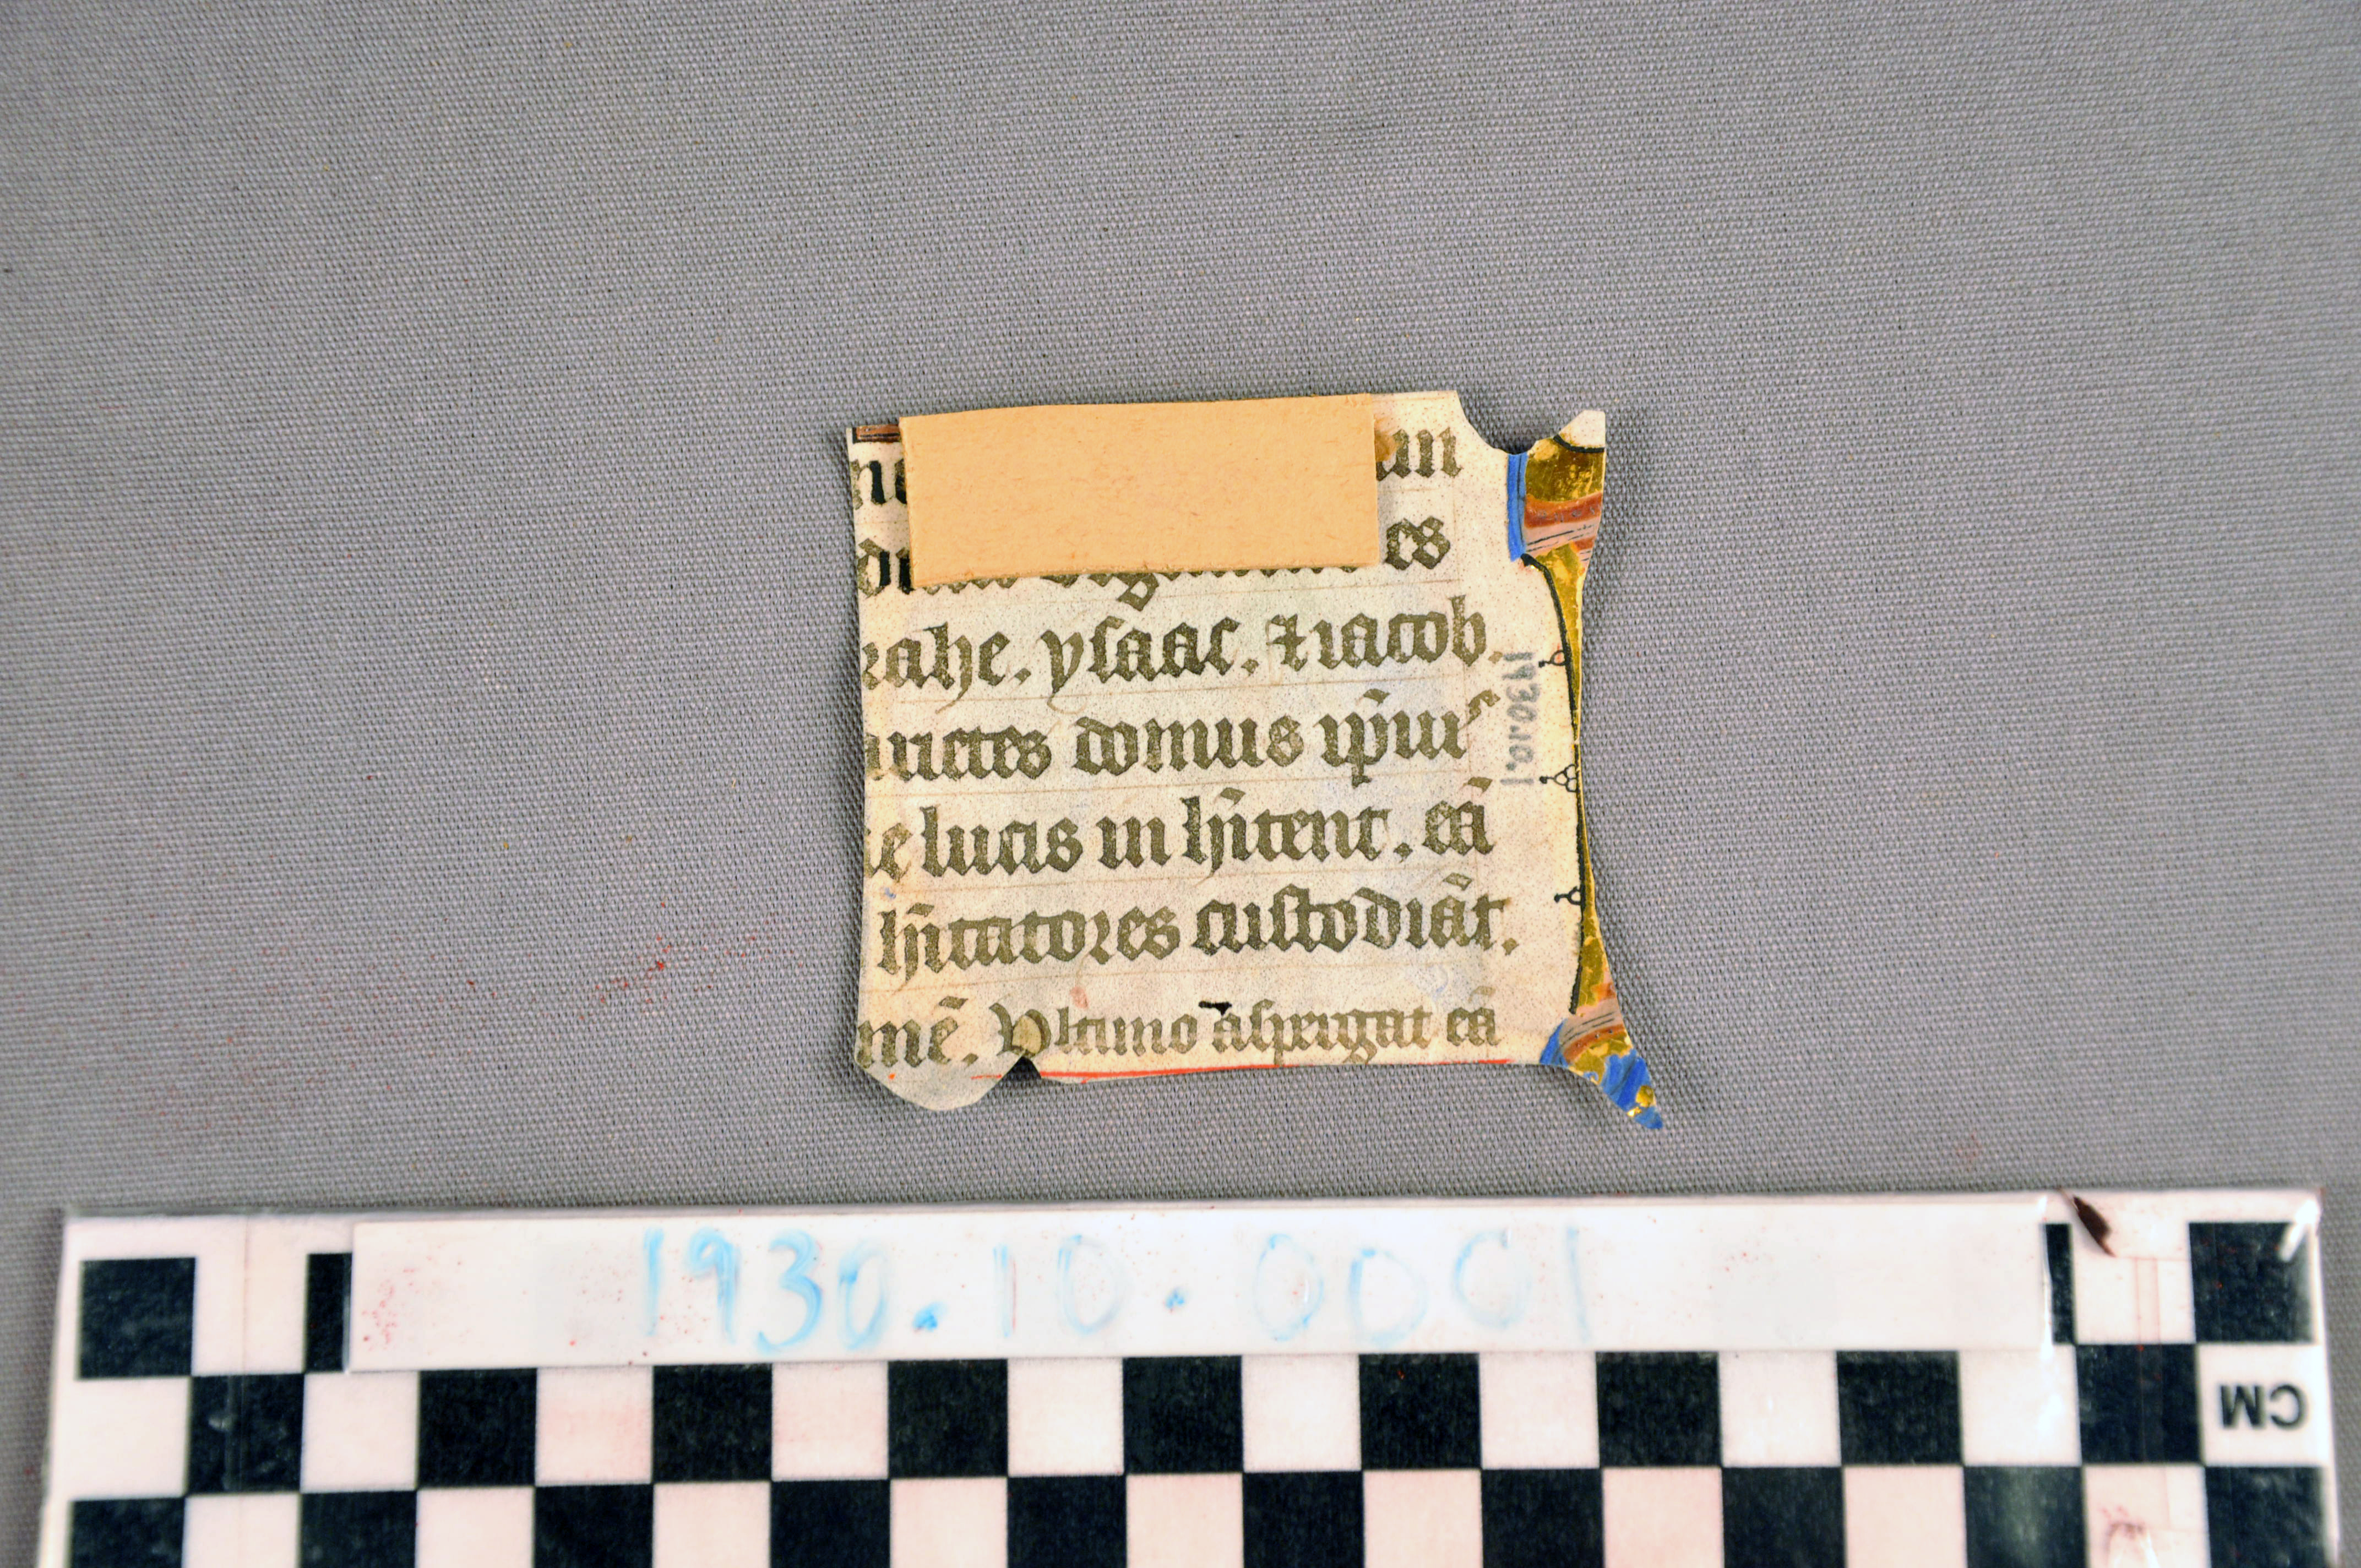 rahe. ysaac. ⁊ iacob.
domus ip̄iuˢ
lucis in hītent. eā
hītatores custodiāt.
mē. Vltimo aspergat eā
1930.10.1
1930.10.0001
CM